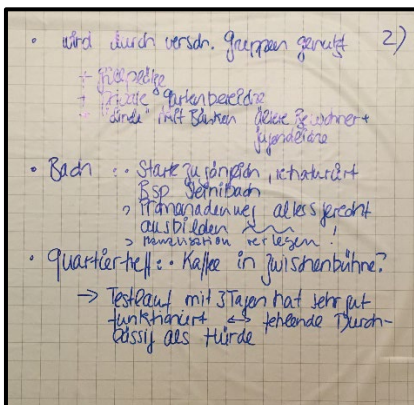 • wird durch versch. Gruppen genutzt 2)
+ private Gartenbereiche
+ "Linde" mit Bänken ältere Bewohner +
Jugendliche
• Bach : • Stark zugänglich, renaturiert
Bsp
> Promenadenweg alles gerecht
ausbilden !
> verlegen !
• Quartiertreff : • Kaffee in Zwischenbühne?
→ Testlauf mit 3 Tagen hat sehr gut
funktioniert ↔ fehlende Durch-
lässig als Hürde